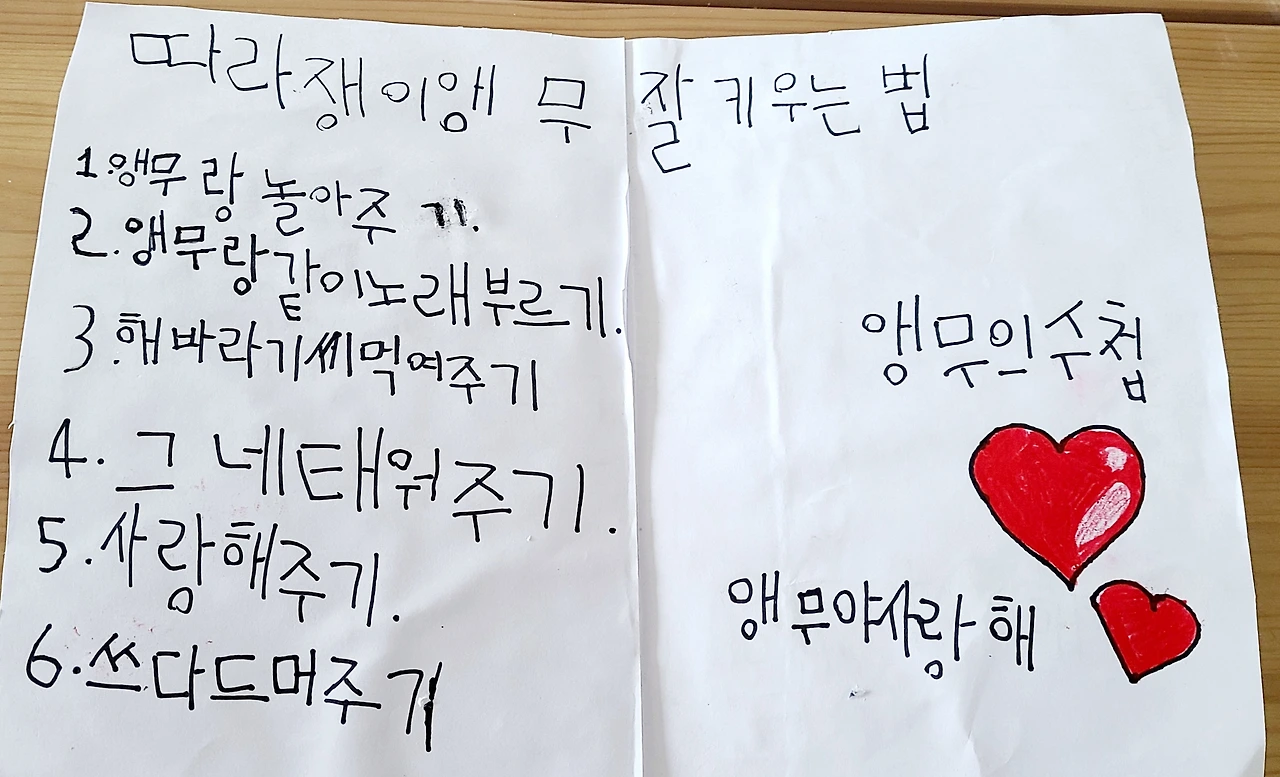 따라쟁이앵무 잘키우는 법
1.앵무랑 놀아주기.
2.앵무랑같이노래부르기.
3.해바라기씨먹여주기
4.그네태워주기.
5.사랑해주기.
6.쓰다드머주기
앵무의수첩
앵무야사랑해